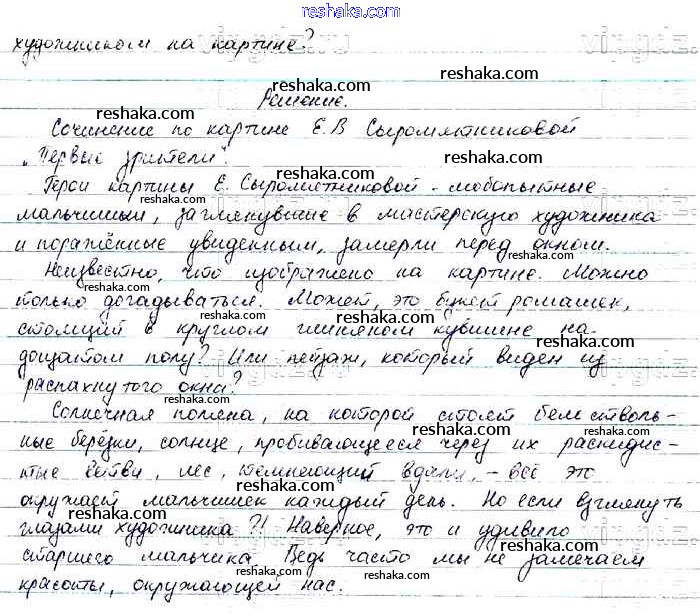 reshaka.com
художником на картине?
Решение.
Сочинение по картине Е.В Сыромятниковой
"Первые зрители".
Герои картины Е. Сыромятниковой - любопытные
мальчишки, заглянувшие в мастерскую художника
и поражённые увиденным, замерли перед окном.
Неизвестно, что изображено на картине. Можно
только догадываться. Может, это букет ромашек,
стоящий в круглом глиняном кувшине на
дощатом полу? Или пейзаж, который виден из
распахнутого окна?
Солнечная поляна, на которой стоят белостволь-
ные берёзки, солнце, пробивающееся через их раскидис-
тые ветви, лес, темнеющий вдали, - всё это
окружает мальчишек каждый день. Но если взглянуть
глазами художника?! Наверное, это и удивило
старшего мальчика Ведь часто мы не замечаем
красоты, окружающей нас.